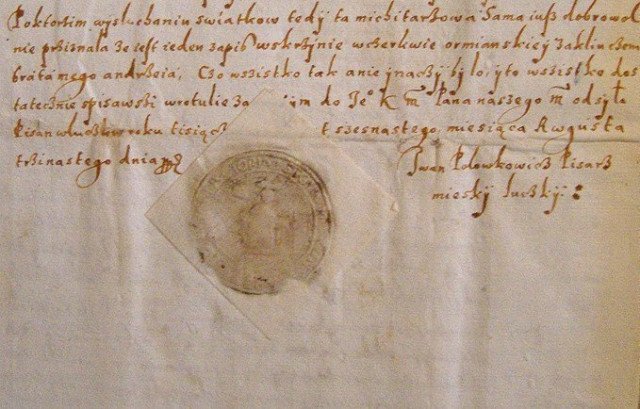 Poktorÿm wysluchaniu swiatkow tedy ta michitarzowa sama iusz dobrowol
nie przisnala ze iest ieden zapis wskrzÿnie wczerkwie ormianskieÿ zaklinczem
brata mego andrzeia, Czo wszistko tak a nie ÿnaczÿ bÿlo, ÿto wszistko dos
tatecznie spisawszi wrotulie za ÿm do Je° K M Pana naszego odsÿla
Pisan wluczkow roku tisiącz t szesnastego, miesiącza Awgusta
trzinastego dnia
Iwan Polowkowicz Pisarz
mieskÿ luczkÿ